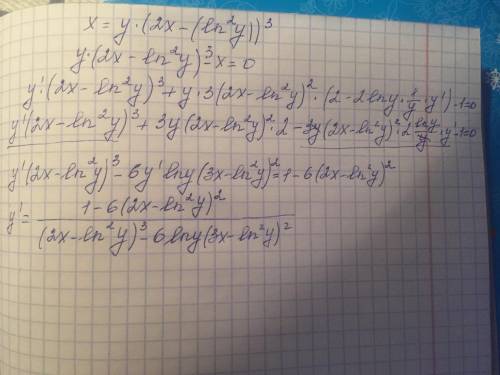 x = y · (2x - (ln²y))³
y·(2x - ln²y)³ - x = 0
y'·(2x - ln²y)³ + y · 3(2x - ln²y)² · (2 - 2lny · 1/y · y') - 1 = 0
y'(2x - ln²y)³ + 3y(2x - ln²y)² · 2 - 3y(2x - ln²y)² · 2 lny/y · y' - 1 = 0
y'(2x - ln²y)³ - 6y' lny(3x - ln²y)² = 1 - 6(2x - ln²y)²
y' = (1 - 6(2x - ln²y)²) / ((2x - ln²y)³ - 6lny(3x - ln²y)²)